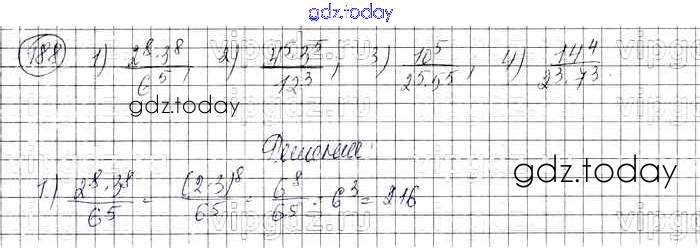 gdz.today
188 1) 2⁸·3⁸/6⁵, 2) 4⁵·3⁵/12³, 3) 10⁵/2⁵·5⁵, 4) 14⁴/2³·7³.
gdz.today
Решение:
gdz.today
1) 2⁸·3⁸/6⁵ = (2·3)⁸/6⁵ = 6⁸/6⁵ = 6³ = 216